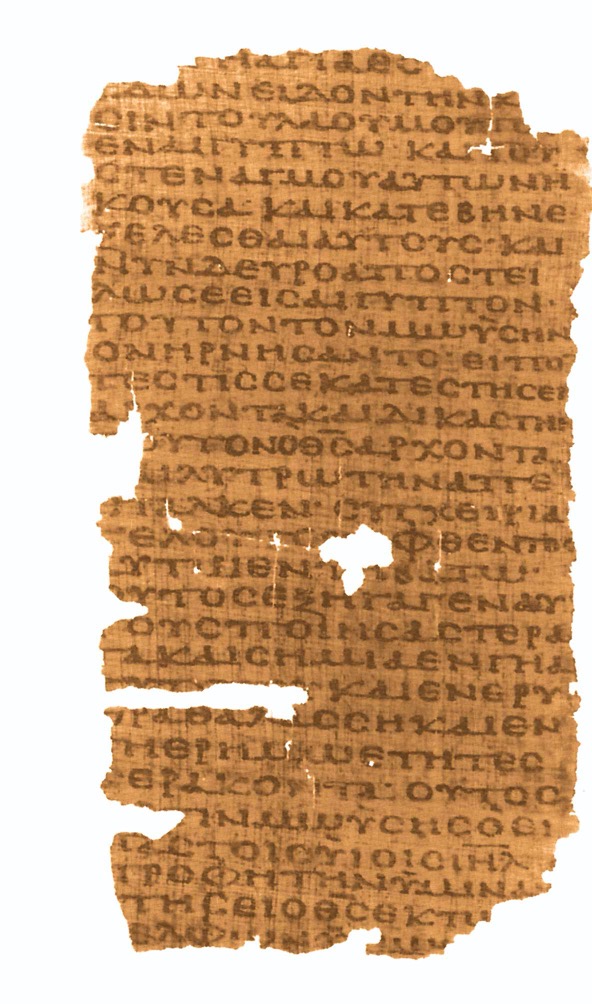 ΓΙΑΕC
ΔΩΝ ΕΙΔΟΝ ΤΗΝ Κ
CΙΝ ΤΟΥ ΛΑΟΥ ΜΟΥ
ΕΝ ΑΙΓΥΠΤΩ ΚΑΙ ΤΟΥ
CΤΕΝΑΓΜΟΥ ΑΥΤΩΝ Η
ΚΟΥCΑ· ΚΑΙ ΚΑΤΕΒΗΝ Ε
ΞΕΛΕCΘΑΙ ΑΥΤΟΥC· ΚΑΙ
ΝΥΝ ΔΕΥΡΟ ΑΠΟCΤΕΙ
ΛΩ CΕ ΕΙC ΑΙΓΥΠΤΟΝ·
ΤΟΥΤΟΝ ΤΟΝ ΜΩΥCΗΝ
ΟΝ ΗΡΝΗCΑΝΤΟ· ΕΙΠΟ
ΤΕC ΤΙC CΕ ΚΑΤΕCΤΗCΕΝ
ΑΡΧΟΝΤΑ ΚΑΙ ΔΙΚΑCΤΗΝ
ΟΥΤΟΝ Ο ΘC ΑΡΧΟΝΤΑ
ΛΥΤΡΩΤΗΝ ΑΠΕ
ΛΚΕΝ· CΥΝ ΧΕΙΡΙ Α
ΓΕΛΟΥ ΦΘΕΝΤΟC
ΥΤ ΕΝ ΒΑΤΩ·
ΟΥΤΟC ΕΞΗΓΑΓΕΝ ΑΥ
ΟΥC ΠΟΙΗCΑC ΤΕΡΑ
ΤΑ ΚΑΙ CΗΜΙΑ ΕΝ ΓΗ Α
ΚΑΙ ΕΝ ΕΡΥ
ΘΡΑ ΘΑΛΑCCΗ ΚΑΙ ΕΝ
ΤΗ ΕΡΗΜΩ ΕΤΗ ΤΕC
CΕΡΑΚΟΝΤΑ· ΟΥΤΟC
ΙΝ ΜΩΥCΗC Ο ΕΙ
ΠΑC ΤΟΙC ΥΙΟΙC ΙΗΛ
ΠΡΟΦΗΤΗΝ ΥΜΙΝ Α
CΤΗCΕΙ Ο ΘC ΕΚ ΤΩ